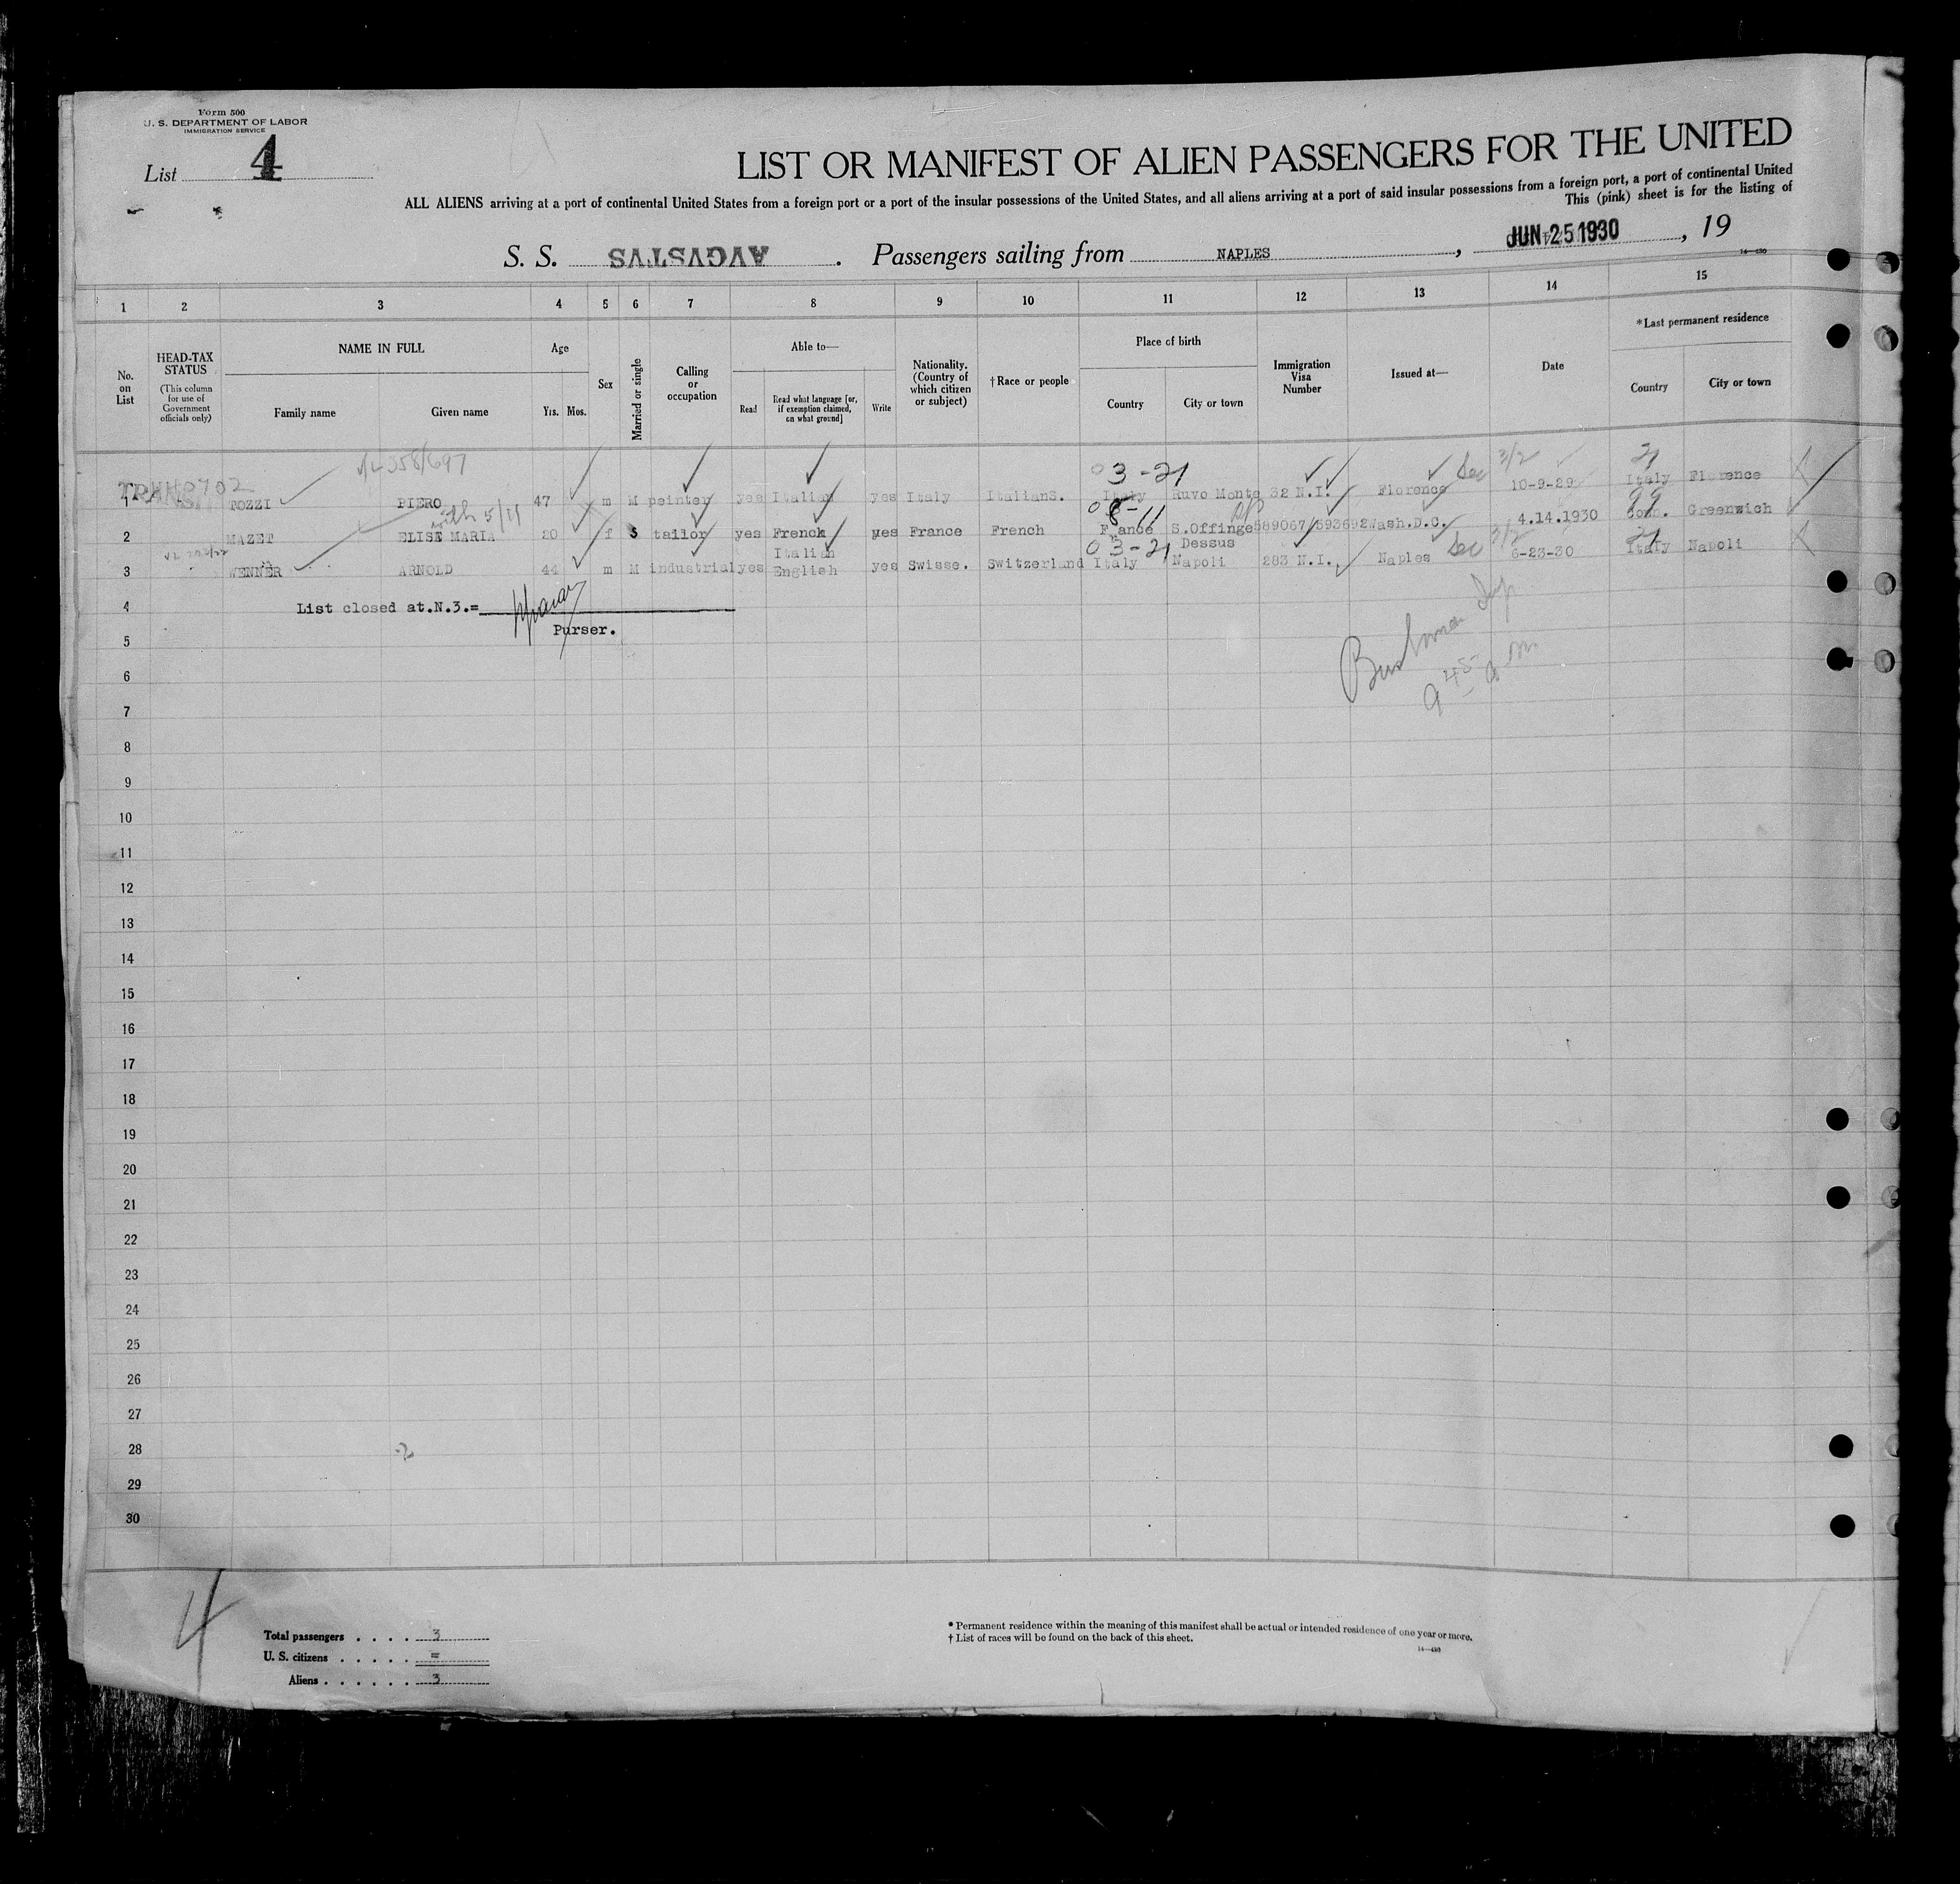 Form 500
U. S. DEPARTMENT OF LABOR
IMMIGRATION SERVICE
List 4
LIST OR MANIFEST OF ALIEN PASSENGERS FOR THE UNITED
ALL ALIENS arriving at a port of continental United States from a foreign port or a port of the insular possessions of the United States, and all aliens arriving at a port of said insular possessions from a foreign port, a port of continental United
This (pink) sheet is for the listing of
S. S. AVGVSTVS . Passengers sailing from NAPLES , JUN 25 1930 , 19
14—430
1 2 3 4 5 6 7 8 9 10 11 12 13 14 15
No. on List
HEAD-TAX STATUS
(This column for use of Government officials only)
NAME IN FULL
Family name Given name
Age
Yrs. Mos.
Sex
Married or single
Calling or occupation
Able to—
Read
Read what language [or, if exemption claimed, on what ground]
Write
Nationality. (Country of which citizen or subject)
† Race or people
Place of birth
Country City or town
Immigration Visa Number
Issued at—
Date
* Last permanent residence
Country City or town
03-21 3/2 21
1 TOZZI PIERO 47 m M peinter yes Italian yes Italy ItalianS. Italy Ruvo Monte 32 N.I. Florence 10-9-29 Italy Florence
with 5/11 08-11 99
2 MAZET ELISE MARIA 20 f S tailor yes French yes France French France S.Offinge 589067/593692 Wash.D.C. 4.14.1930 Conn. Greenwich
Italian 03-21 Dessus 3/2 21
3 WENNER ARNOLD 44 m M industrial yes English yes Swisse. Switzerland Italy Napoli 283 N.I. Naples 6-23-30 Italy Napoli
4 List closed at.N.3.=
Purser.
5
9 45 a m
6
7
8
9
10
11
12
13
14
15
16
17
18
19
20
21
22
23
24
25
26
27
28
29
30
4
Total passengers . . . . 3
U. S. citizens . . . . . =
Aliens . . . . . . 3
* Permanent residence within the meaning of this manifest shall be actual or intended residence of one year or more.
† List of races will be found on the back of this sheet.
14—430